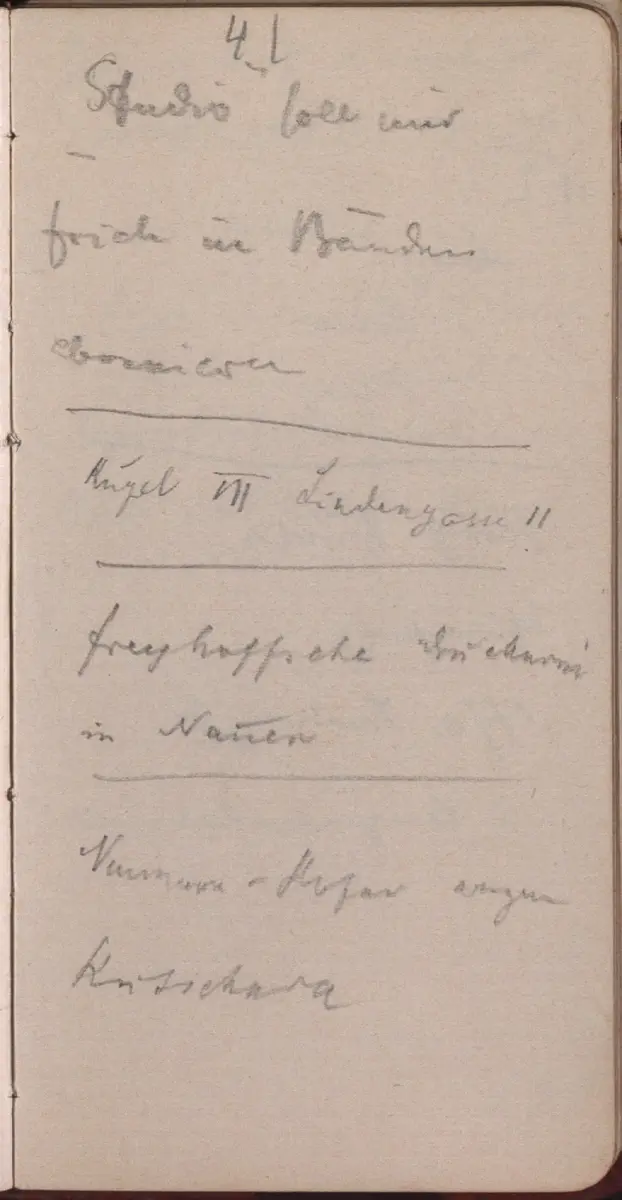 4 |
Studio soll mir
frich in Bänden
abonnieren
Kugel VII Lindengasse 11
freyhoffsche Druckerei
in Nauen
Neumann-Hofer wegen
Kutschera